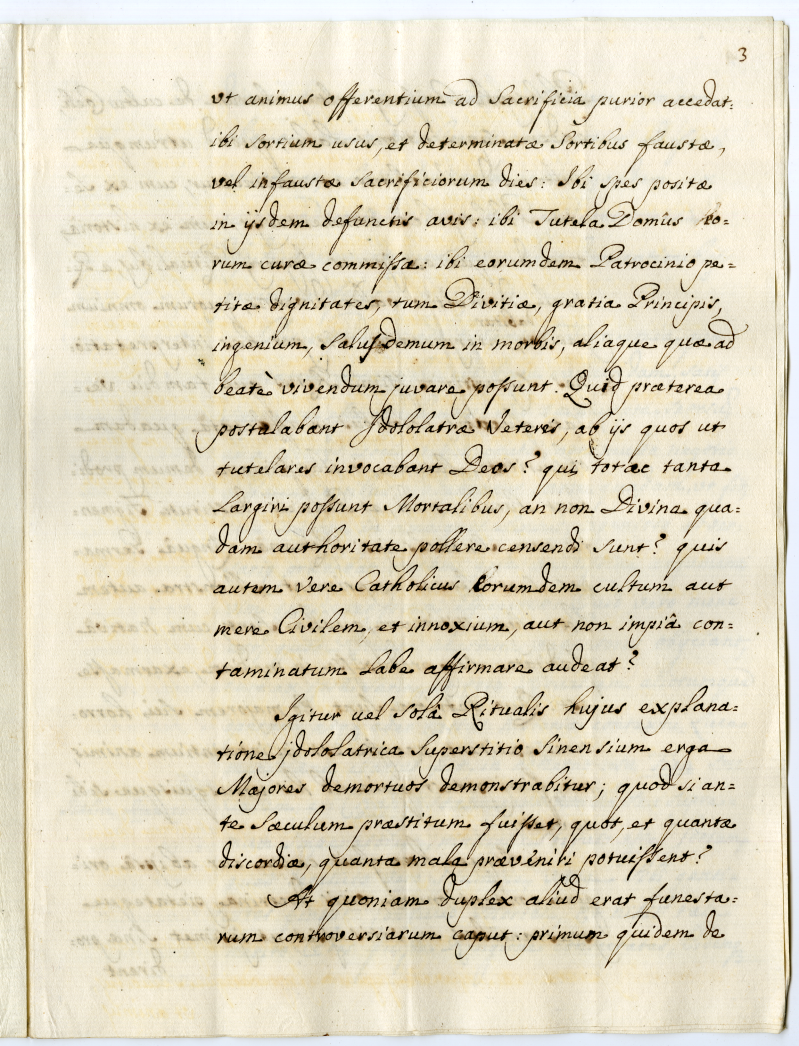 3
ut animus offerentium ad Sacrificia purior accedat:
ibi sortium usus, et determinatæ Sortibus faustæ,
vel infaustæ Sacrificiorum dies: Ibi spes positæ
in ijsdem defunctis avis: ibi Tutela Domûs eo-
rum curæ commissa: ibi eorumdem Patrocinio pe-
titæ dignitates, tum Divitiæ, gratia Principis,
ingenium, Salus demum in morbis, aliaque quæ ad
beatè vivendum juvare possunt. Quid præterea
postulabant Idololatræ Veteres, ab ijs quos ut
tutelares invocabant Deos? qui tot ac tanta
Largiri possunt Mortalibus, an non Divina qua-
dam authoritate pollere censendi sunt? quis
autem vere Catholicus eorumdem cultum aut
mere Civilem, et innoxium, aut non impiâ con-
taminatum Labe affirmare audeat?
Igitur vel solâ Ritualis hujus explana-
tione jdololatrica Superstitio Sinensium erga
Majores demortuos demonstrabitur; quod si an-
te Sæculum præstitum fuisset, quot, et quantæ
discordiæ, quanta mala præveniri potuissent?
At quoniam duplex aliud erat funesta-
rum controversiarum caput: primum quidem de